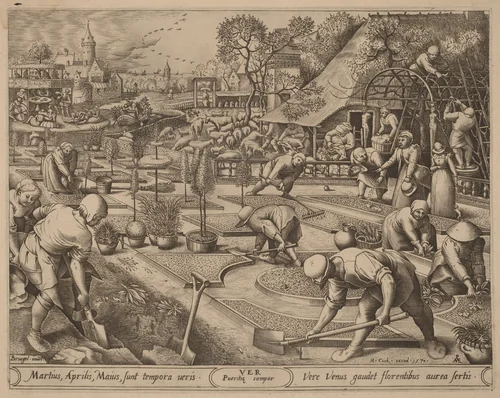 Bruegel inuēt
H. Cock. excud. 1570.
Martius, Aprilis, Maius, sunt tempora ueris.
VER
Pueritię compar
Vere Venus gaudet florentibus aurea sertis.